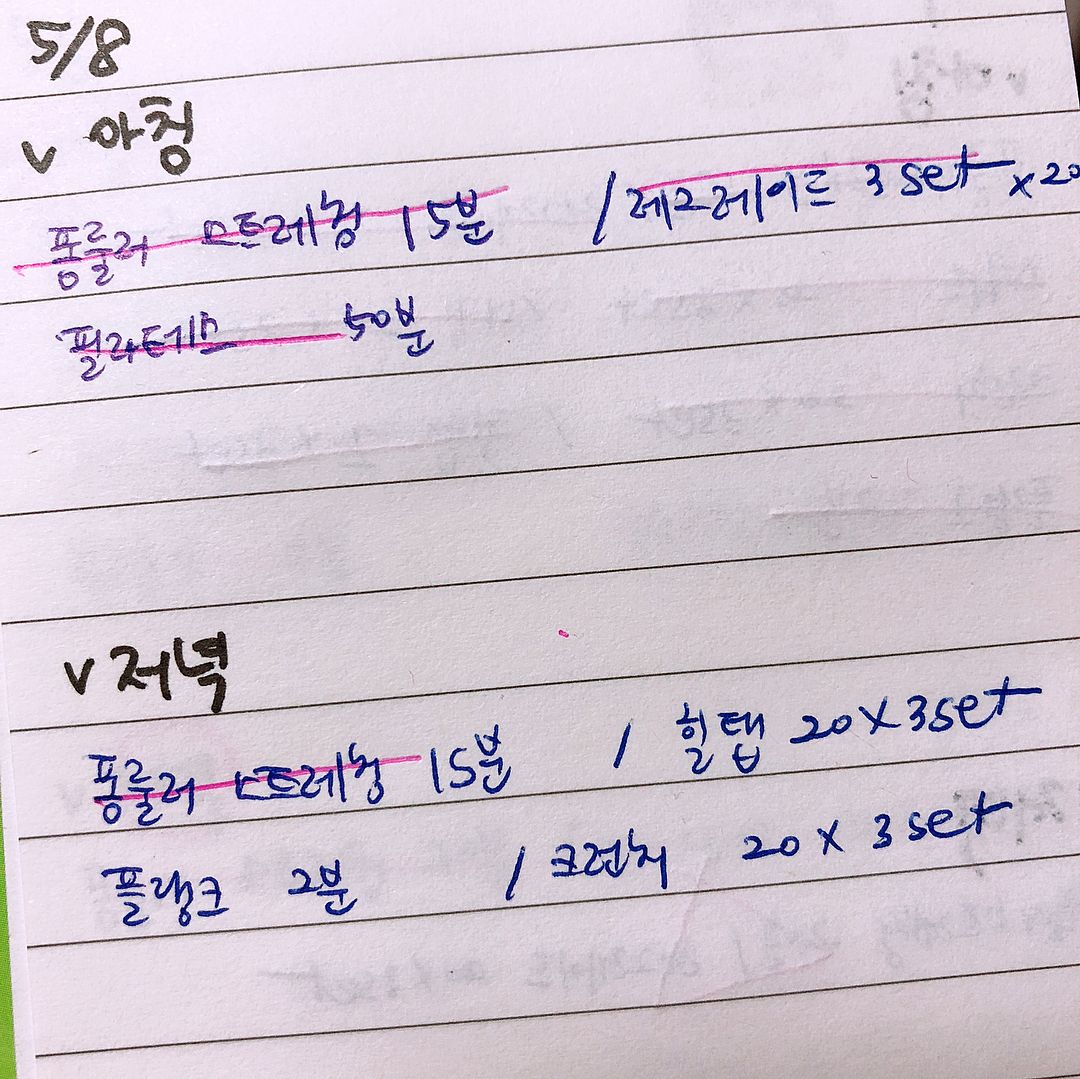 5/8
v 아침
폼롤러 스트레칭 15분 / 레그레이드 3 set x 20
필라테스 50분
v 저녁
폼롤러 스트레칭 15분 / 힐탭 20 x 3set
플랭크 2분 / 크런치 20 x 3 set